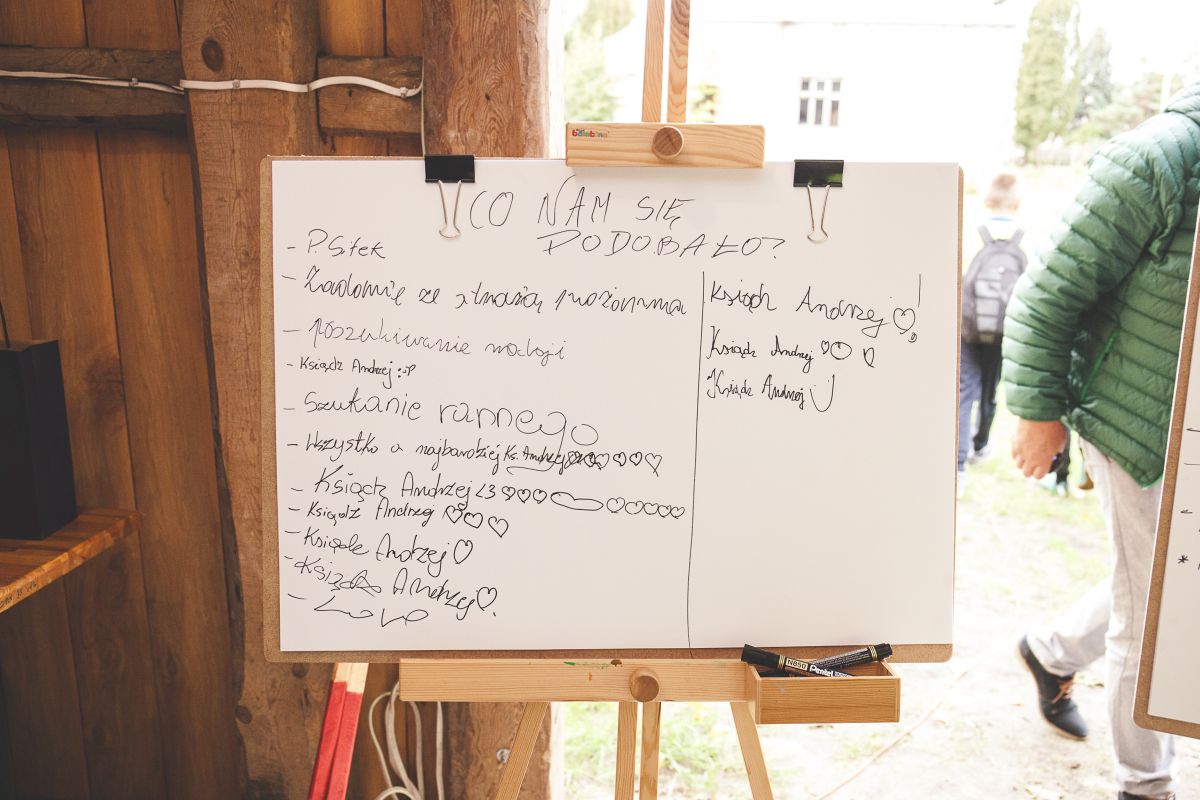 bambino
CO NAM SIĘ
PODOBAŁO?
- P. Sitek
- Zadomię ze strażą pożarną
- poszukiwanie nadziji
- Ksiądz Andrzej :-P
- Szukanie rannego
- Wszystko a najbardziej Ks. Andrzej ♡♡♡♡♡♡
- Ksiądz Andrzej <3 ♡♡♡ ♡♡♡♡♡
- Ksiądz Andrzej ♡♡♡
- Ksiądz Andrzej ♡
- Ksiądz Andrzej ♡.
- Love
Ksiądz Andrzej ♡!
Ksiądz Andrzej ♡♡ ♡
Ksiądz Andrzej
N850 Pentel